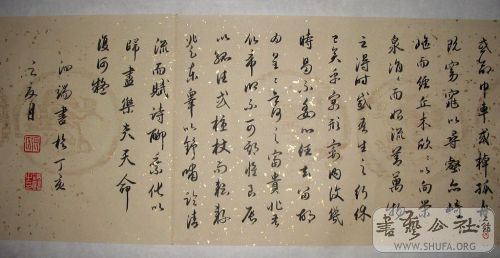 或命巾車或棹孤舟
既窈窕以尋壑亦崎
嶇而經丘木欣欣以向榮
泉涓而始流羨萬物
之得時感吾生之行休
已矣乎寓形宇內復幾
時曷不委心任去留胡
為之富貴非吾
帝鄉不可期懷良辰
以孤往或植杖而耘耔
東皋以舒嘯臨清
流而賦詩聊乘化以
歸盡樂夫天命
復何疑
書於丁亥
之夏月
書藝公社
WWW.SHUFA.ORG